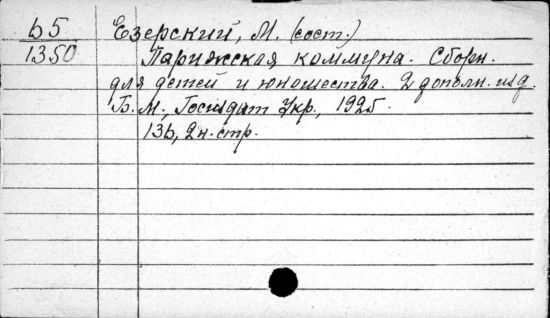 Б5 Езерский, М. (сост.)
1350 Парижская коммуна. Сборн.
для детей и юношества. 2 дополн. изд.
Б. М., Госиздат Укр., 1925.
136, 2 н. стр.